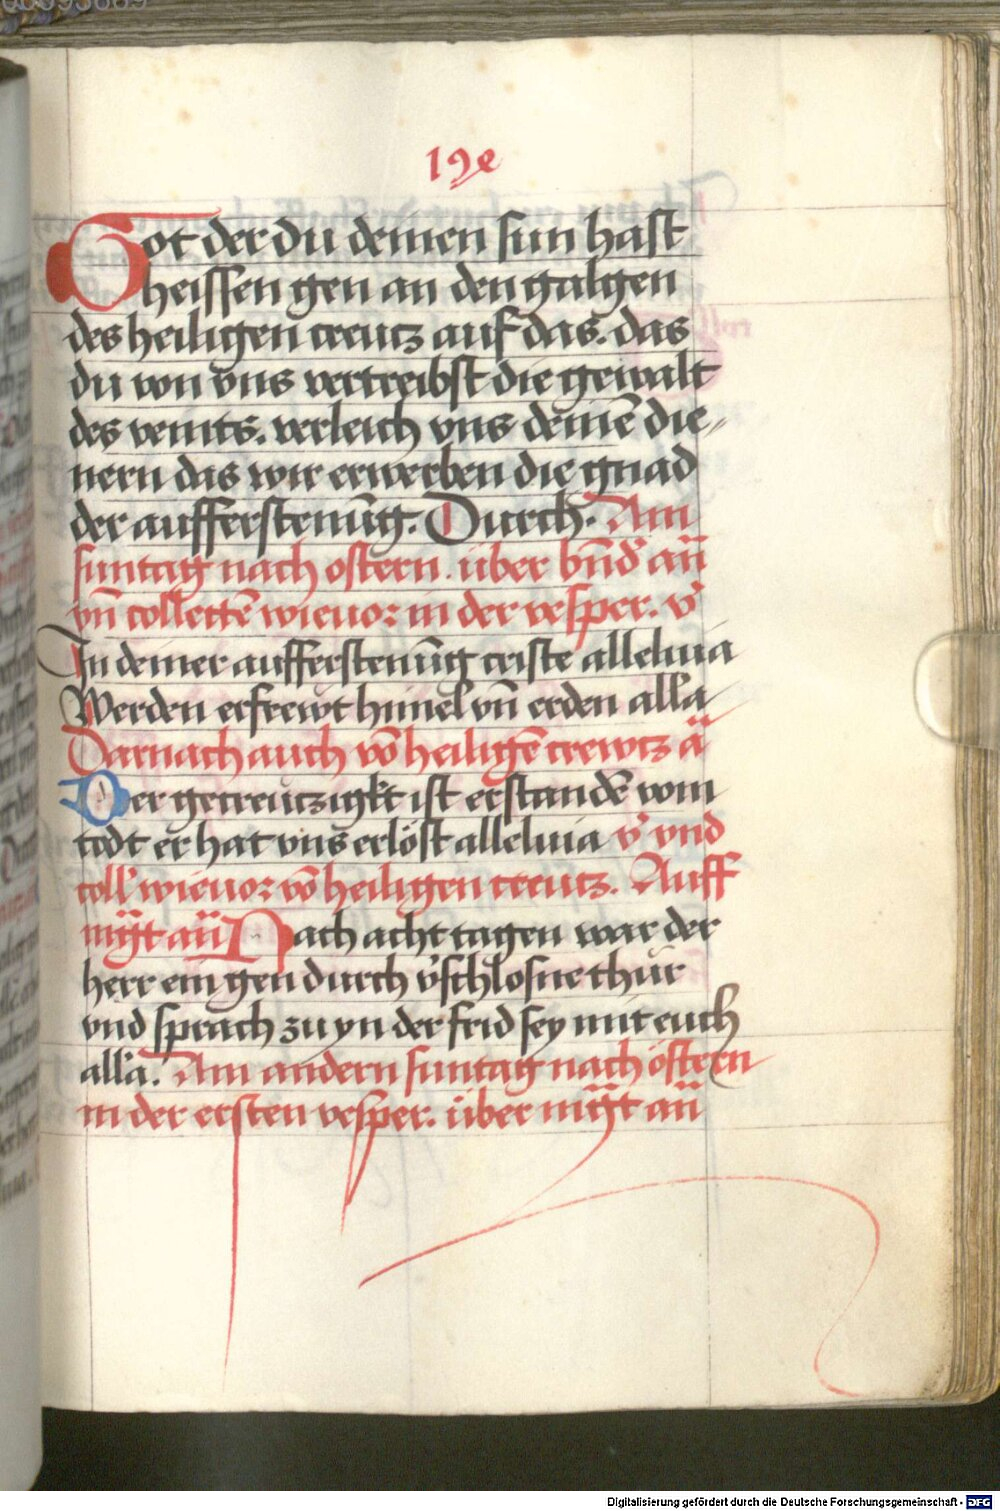 19e
Got der du deinen sun hast
heissen gen an den galgen
des heiligen creutz auf das. das
du von vns vertreibst die gewalt
des veints. verleich vns deinē die„
nern das wir erwerben die gnad
der aufferstenūg. Durch. Am
suntag nach ostern. über bn̄d' an̄
vn̄ collectē wieuor in der vesper. v'
In deiner aufferstenūg criste alleluia
Werden erfrewt himel vn̄ erden all'a
Darnach auch vō heiligē crewtz ā
Der gecreutzigkt ist erstandē vom
todt er hat vns erlöst alleluia v' vnd
coll' wieuor vō heiligen creutz. Auff
mgt an̄ Nach acht tagen war der
herr ein gen durch v'schlosne thür
vnd sprach zu yn der frid sey mit euch
all'a. Am andern suntag nach östern
in der ersten vesper. über mgt an̄
Digitalisierung gefördert durch die Deutsche Forschungsgemeinschaft - DFG